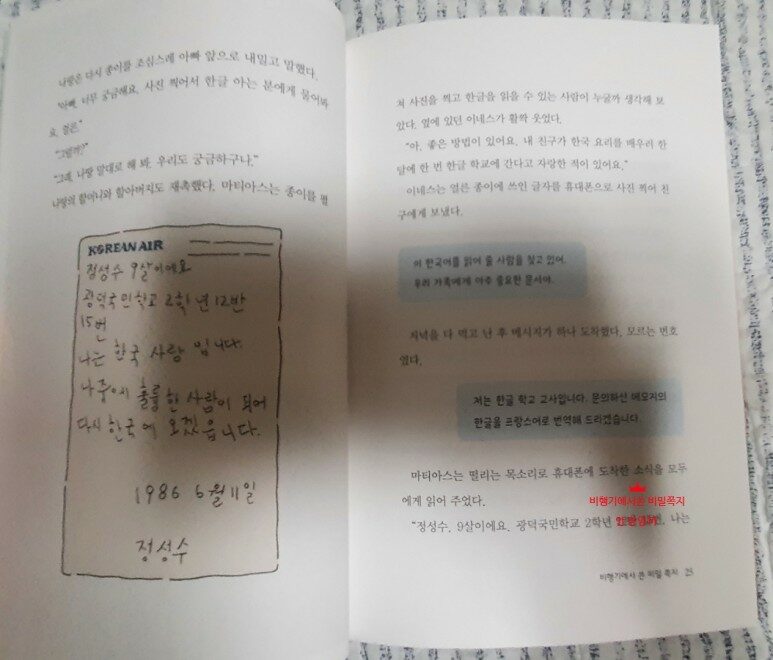 나랑은 다시 종이를 조심스레 아빠 앞으로 내밀고 말했다.
"아빠, 너무 궁금해요. 사진 찍어서 한글 아는 분에게 물어봐
요, 얼른."
"그럴까?"
"그래, 나랑 말대로 해 봐. 우리도 궁금하구나."
나랑의 할머니와 할아버지도 재촉했다. 마티아스는 종이를 펼
KOREAN AIR
정성수 9살이에요
광덕국민학교 2학년 12반
15번
나는 한국 사람 입니다.
나중에 훌륭한 사람이 되어
다시 한국에 오겠읍니다.
1986 6월 11일
정성수
쳐 사진을 찍고 한글을 읽을 수 있는 사람이 누굴까 생각해 보
았다. 옆에 있던 이네스가 활짝 웃었다.
"아, 좋은 방법이 있어요. 내 친구가 한국 요리를 배우러 한
달에 한 번 한글 학교에 간다고 자랑한 적이 있어요."
이네스는 얼른 종이에 쓰인 글자를 휴대폰으로 사진 찍어 친
구에게 보냈다.
이 한국어를 읽어 줄 사람을 찾고 있어.
우리 가족에게 아주 중요한 문서야.
저녁을 다 먹고 난 후 메시지가 하나 도착했다. 모르는 번호
였다.
저는 한글 학교 교사입니다. 문의하신 메모지의
한글을 프랑스어로 번역해 드리겠습니다.
마티아스는 떨리는 목소리로 휴대폰에 도착한 소식을 모두
에게 읽어 주었다.
비행기에서온 비밀쪽지
"정성수, 9살이에요. 광덕국민학교 2학년 나는
비행기에서 온 비밀 쪽지 25